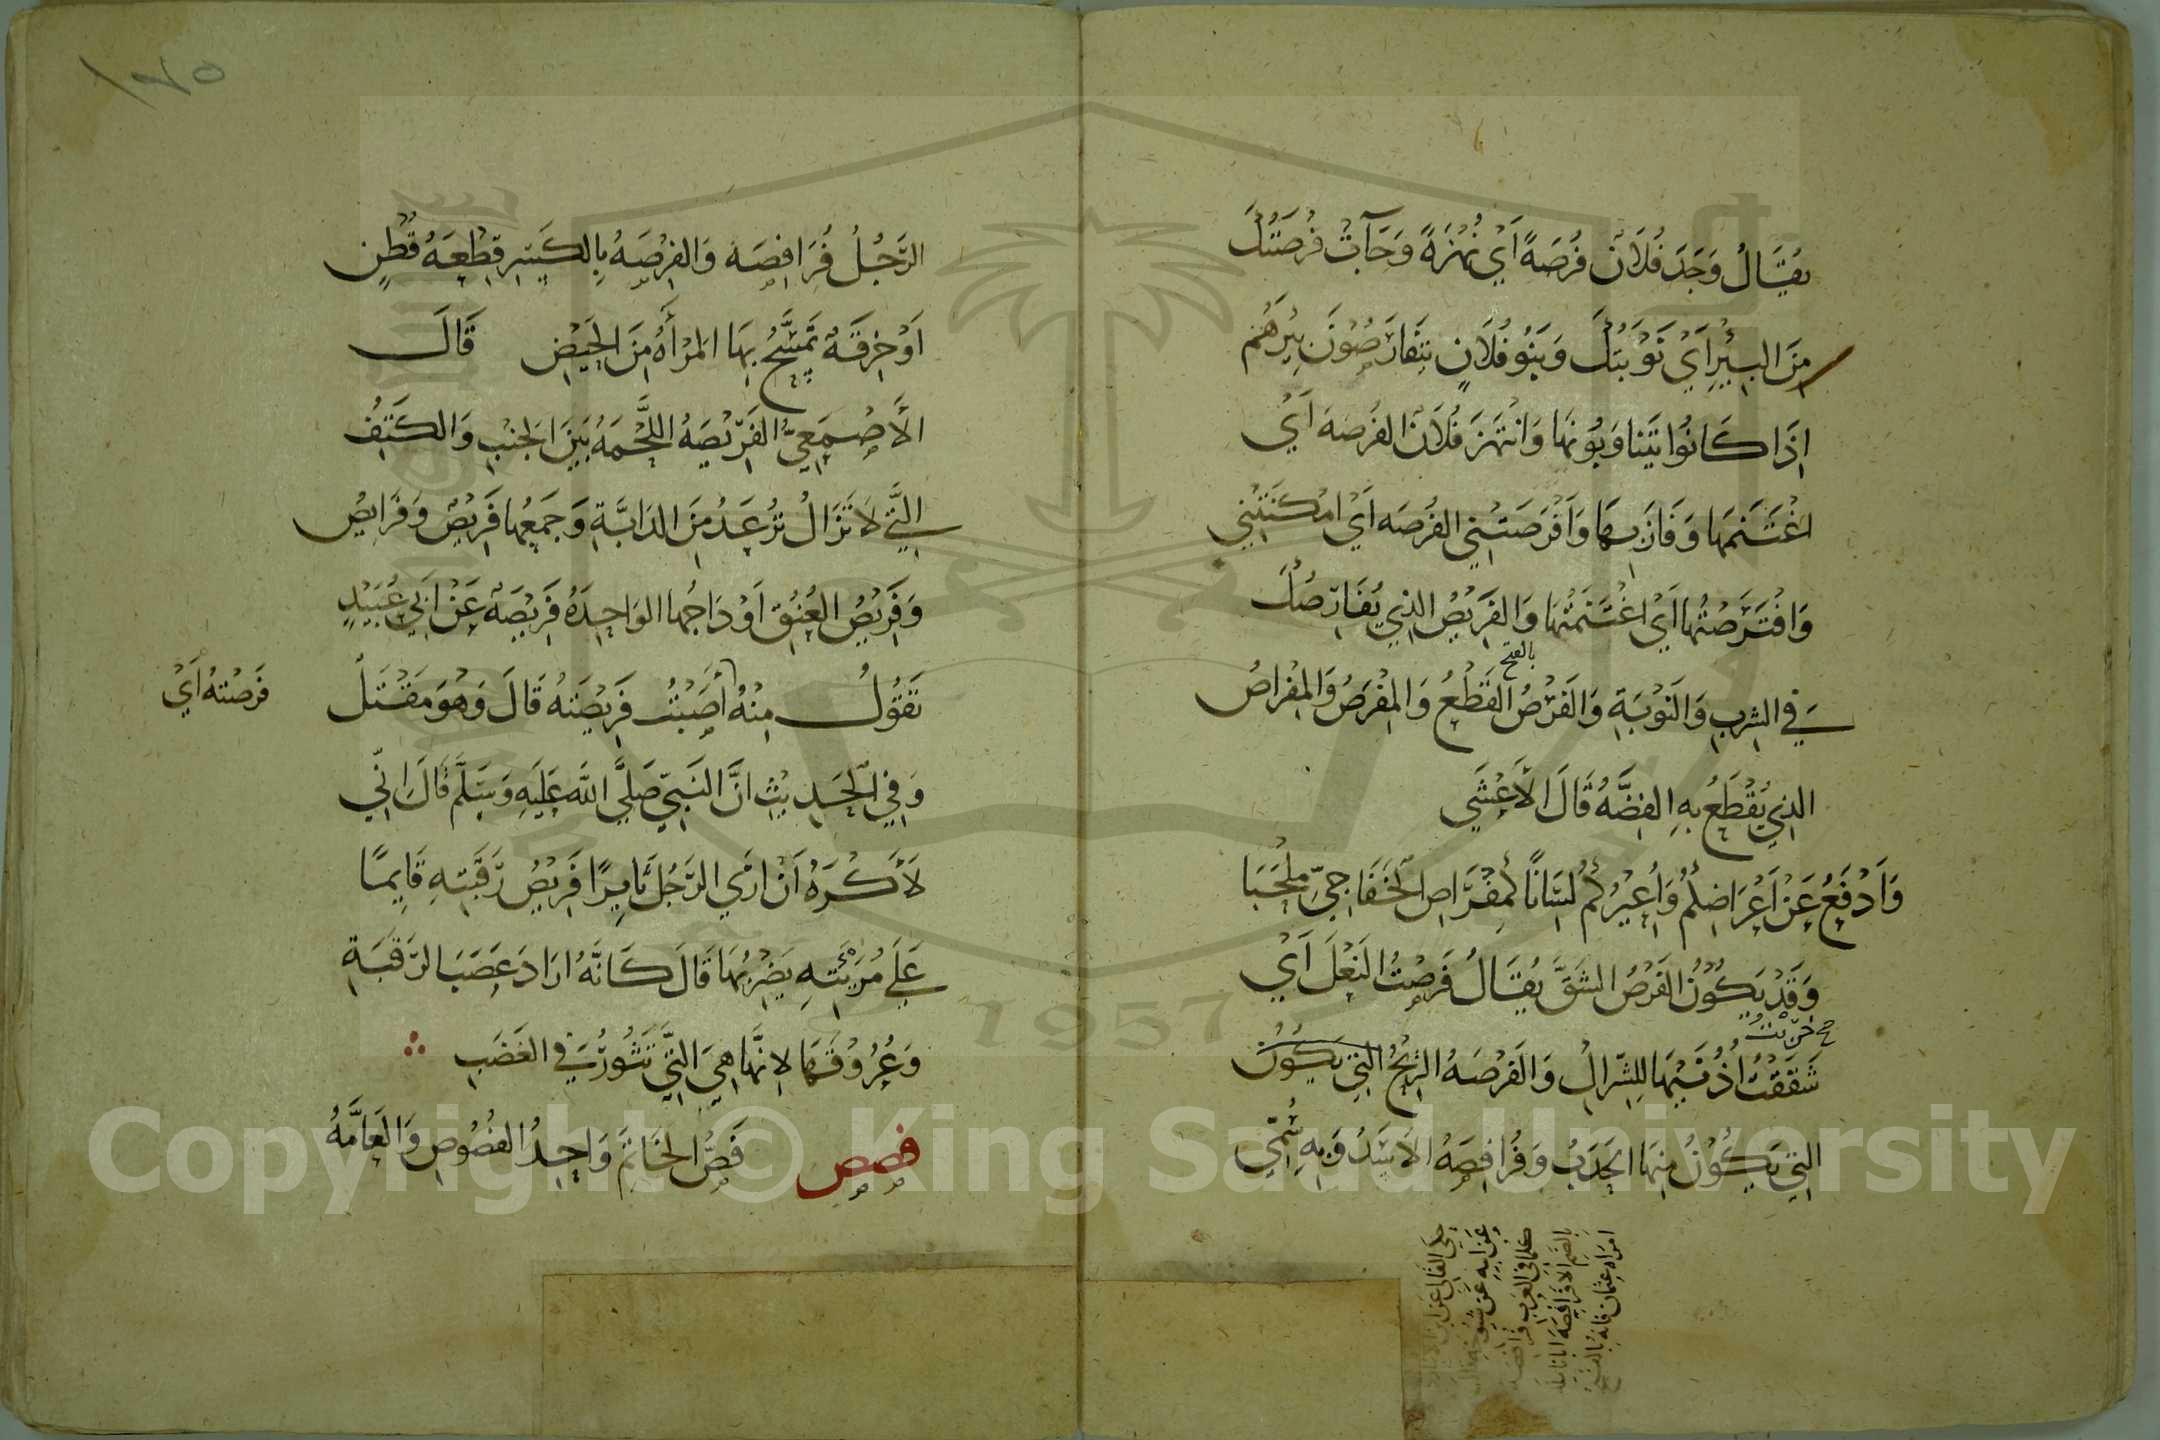 يُقَالُ وَجَدَ فُلَانٌ فُرْصَةً اَيْ نُهْزَةً وَجَآتْ فُرْصَتُكَ
مِنَ البِئْرِ اَيْ نَوْبَتُكَ وَبَنُو فُلَانٍ يَتَفَارَصُوْنَ بِئْرَهُمْ
اِذَا كَانُوا يَتَنَاوَبُونَهَا وَانْتَهَزَ فُلَانٌ الفُرْصَهَ اَيْ
اغْتَنَمَهَا وَفَازَ بِهَا وَاَفْرَصَتْنِي الفُرْصَه اَيْ اَمْكَنَتْنِي
وَافْتَرَصْتُهَا اَيْ اغْتَنَمْتُهَا وَالفَرِيْصُ الذِي يُفَارِصُكَ
بالفتح
فِي الشِرْبِ وَالنَوْبَةِ وَالفَرْصُ القَطْعُ وَالمِفْرَصُ وَالمِفْرَاصُ
الذِي يُقْطَعُ بِهِ الفِضَّهُ قَالَ الاَعْشَي
وَاَدْفَعُ عَنْ اَعْرَاضِكُمْ وَاُعِيْرُكُمْ لِسَانًا كَمِفْرَاصِ الخَفَاجِيِّ مِلْحَبَا
وَقَدْ يَكُوْنُ الفَرْصُ الشَقَّ يُقَالُ فَرَصْتُ النَعْلَ اَيْ
شَقَقْتُ اُذُنَيْهَا لِلشِرَاكِ وَالفَرْصَهُ الرِيْحُ التِي يَكُوْنُ
التِي يَكُوْنُ مِنْهَا الحَدَبُ وَفُرَافِصَهُ الاَسَدُ وَبِهِ سُمِّيَ
الرَّجُلُ فُرَافِصَه وَالفِرْصَهُ بِالكَسْرِ قِطْعَهُ قُطْنٍ
اَوْ خِرقَهٌ تَمَسَّحُ بِهَا المَرْأَهُ مِنَ الحَيْضِ قَالَ
الاَصْمَعِيُّ الفَرِيْصَهُ اللَّحْمَهُ بَيْنَ الجَنْبِ وَالكَتِفِ
التِي لَا تَزَالُ تُرْعَدُ مِنَ الدَابَّةِ وَجَمْعُهَا فَرِيْصٌ وَفَرَايِصُ
وَفَرِيْصُ العُنُقِ اَوْدَاجُهَا الوَاحِدَهُ فَرِيْصَهٌ عَنْ اَبِي عُبَيْدٍ
تَقُوْلُ مِنْهُ أَصَبْتُ فَرِيْصَتَهُ قَالَ وَهُوَ مَقْتَلٌ
فَرَصْتهُ اَيْ
وَفِي الحَدِيْثِ انَّ النَبِيَّ صَلَّي اللَّه عَلَيْهِ وَسَلَّمَ قَالَ اِنِّي
لَاَكْرَهُ اَنْ ارَي الرَجُلَ ثَايِرًا فَرِيْصُ رَقَبَتِهِ قَايِمًا
عَلَي مُرَيْئَتِهِ يَضْرِبُهَا قَالَ كَانَّهُ ارَادَ عَصَبَ الرَقَبَةِ
وَعُرُوْقَهَا لِانَّهَا هِيَ التِّي تَثُوْرُ فِي الغَضَبِ
فصص فَصُّ الخَاتَمِ وَاحِدُ الفُصُوْصِ وَالعَامَّهُ
امراه عثمان فانه بالفتح